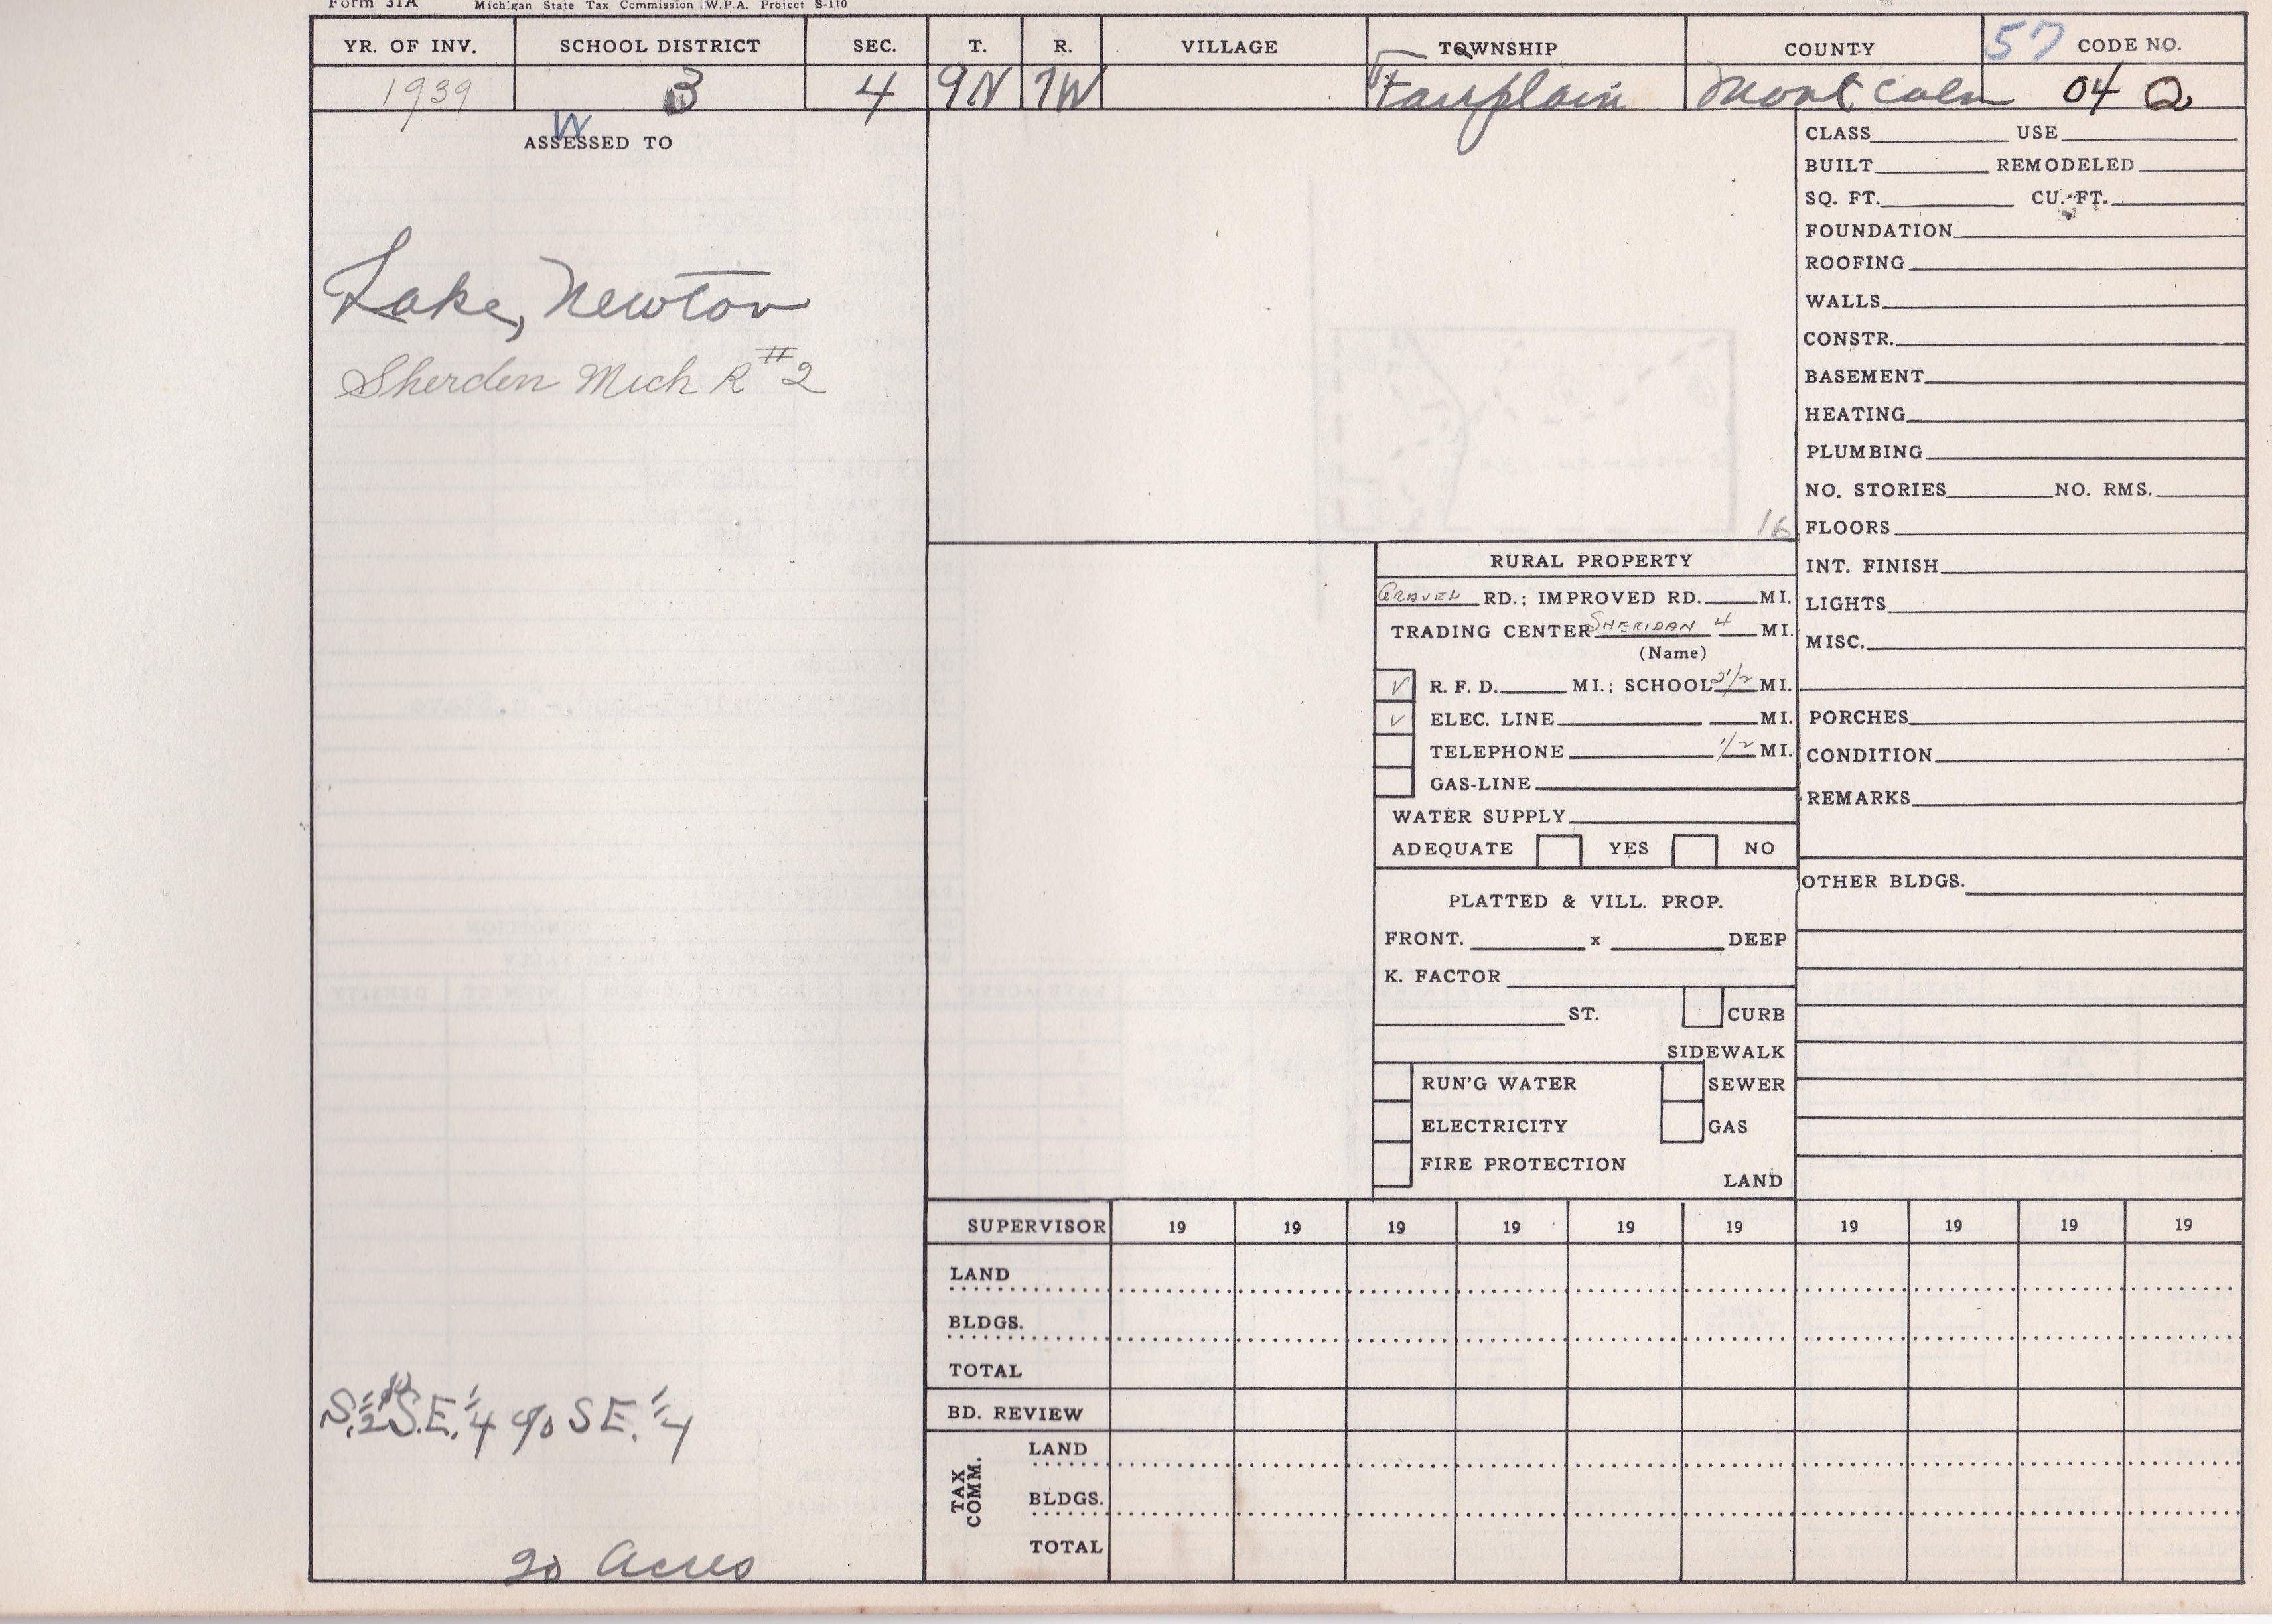 Form 31A Michigan State Tax Commission W.P.A. Project S-110
YR. OF INV. SCHOOL DISTRICT SEC. T. R. VILLAGE TOWNSHIP COUNTY 57 CODE NO.
1939 3 4 9N 7W Fairplain Montcalm 04 Q
W
ASSESSED TO
Lake, Newton
Sherden Mich R #2
S. 1/2 S.E. 1/4 of S E. 1/4
20 Acres
16
RURAL PROPERTY
GRAVEL RD.; IMPROVED RD. MI.
TRADING CENTER SHERIDAN 4 MI.
(Name)
V R. F. D. MI.; SCHOOL 2 1/2 MI.
V ELEC. LINE MI.
TELEPHONE 1/2 MI.
GAS-LINE
WATER SUPPLY
ADEQUATE YES NO
PLATTED & VILL. PROP.
FRONT. x DEEP
K. FACTOR
ST. CURB
SIDEWALK
RUN'G WATER SEWER
ELECTRICITY GAS
FIRE PROTECTION
LAND
CLASS USE
BUILT REMODELED
SQ. FT. CU. FT.
FOUNDATION
ROOFING
WALLS
CONSTR.
BASEMENT
HEATING
PLUMBING
NO. STORIES NO. RMS.
FLOORS
INT. FINISH
LIGHTS
MISC.
PORCHES
CONDITION
REMARKS
OTHER BLDGS.
SUPERVISOR 19 19 19 19 19 19 19 19 19 19
LAND
BLDGS.
TOTAL
BD. REVIEW
TAX COMM.
LAND
BLDGS.
TOTAL